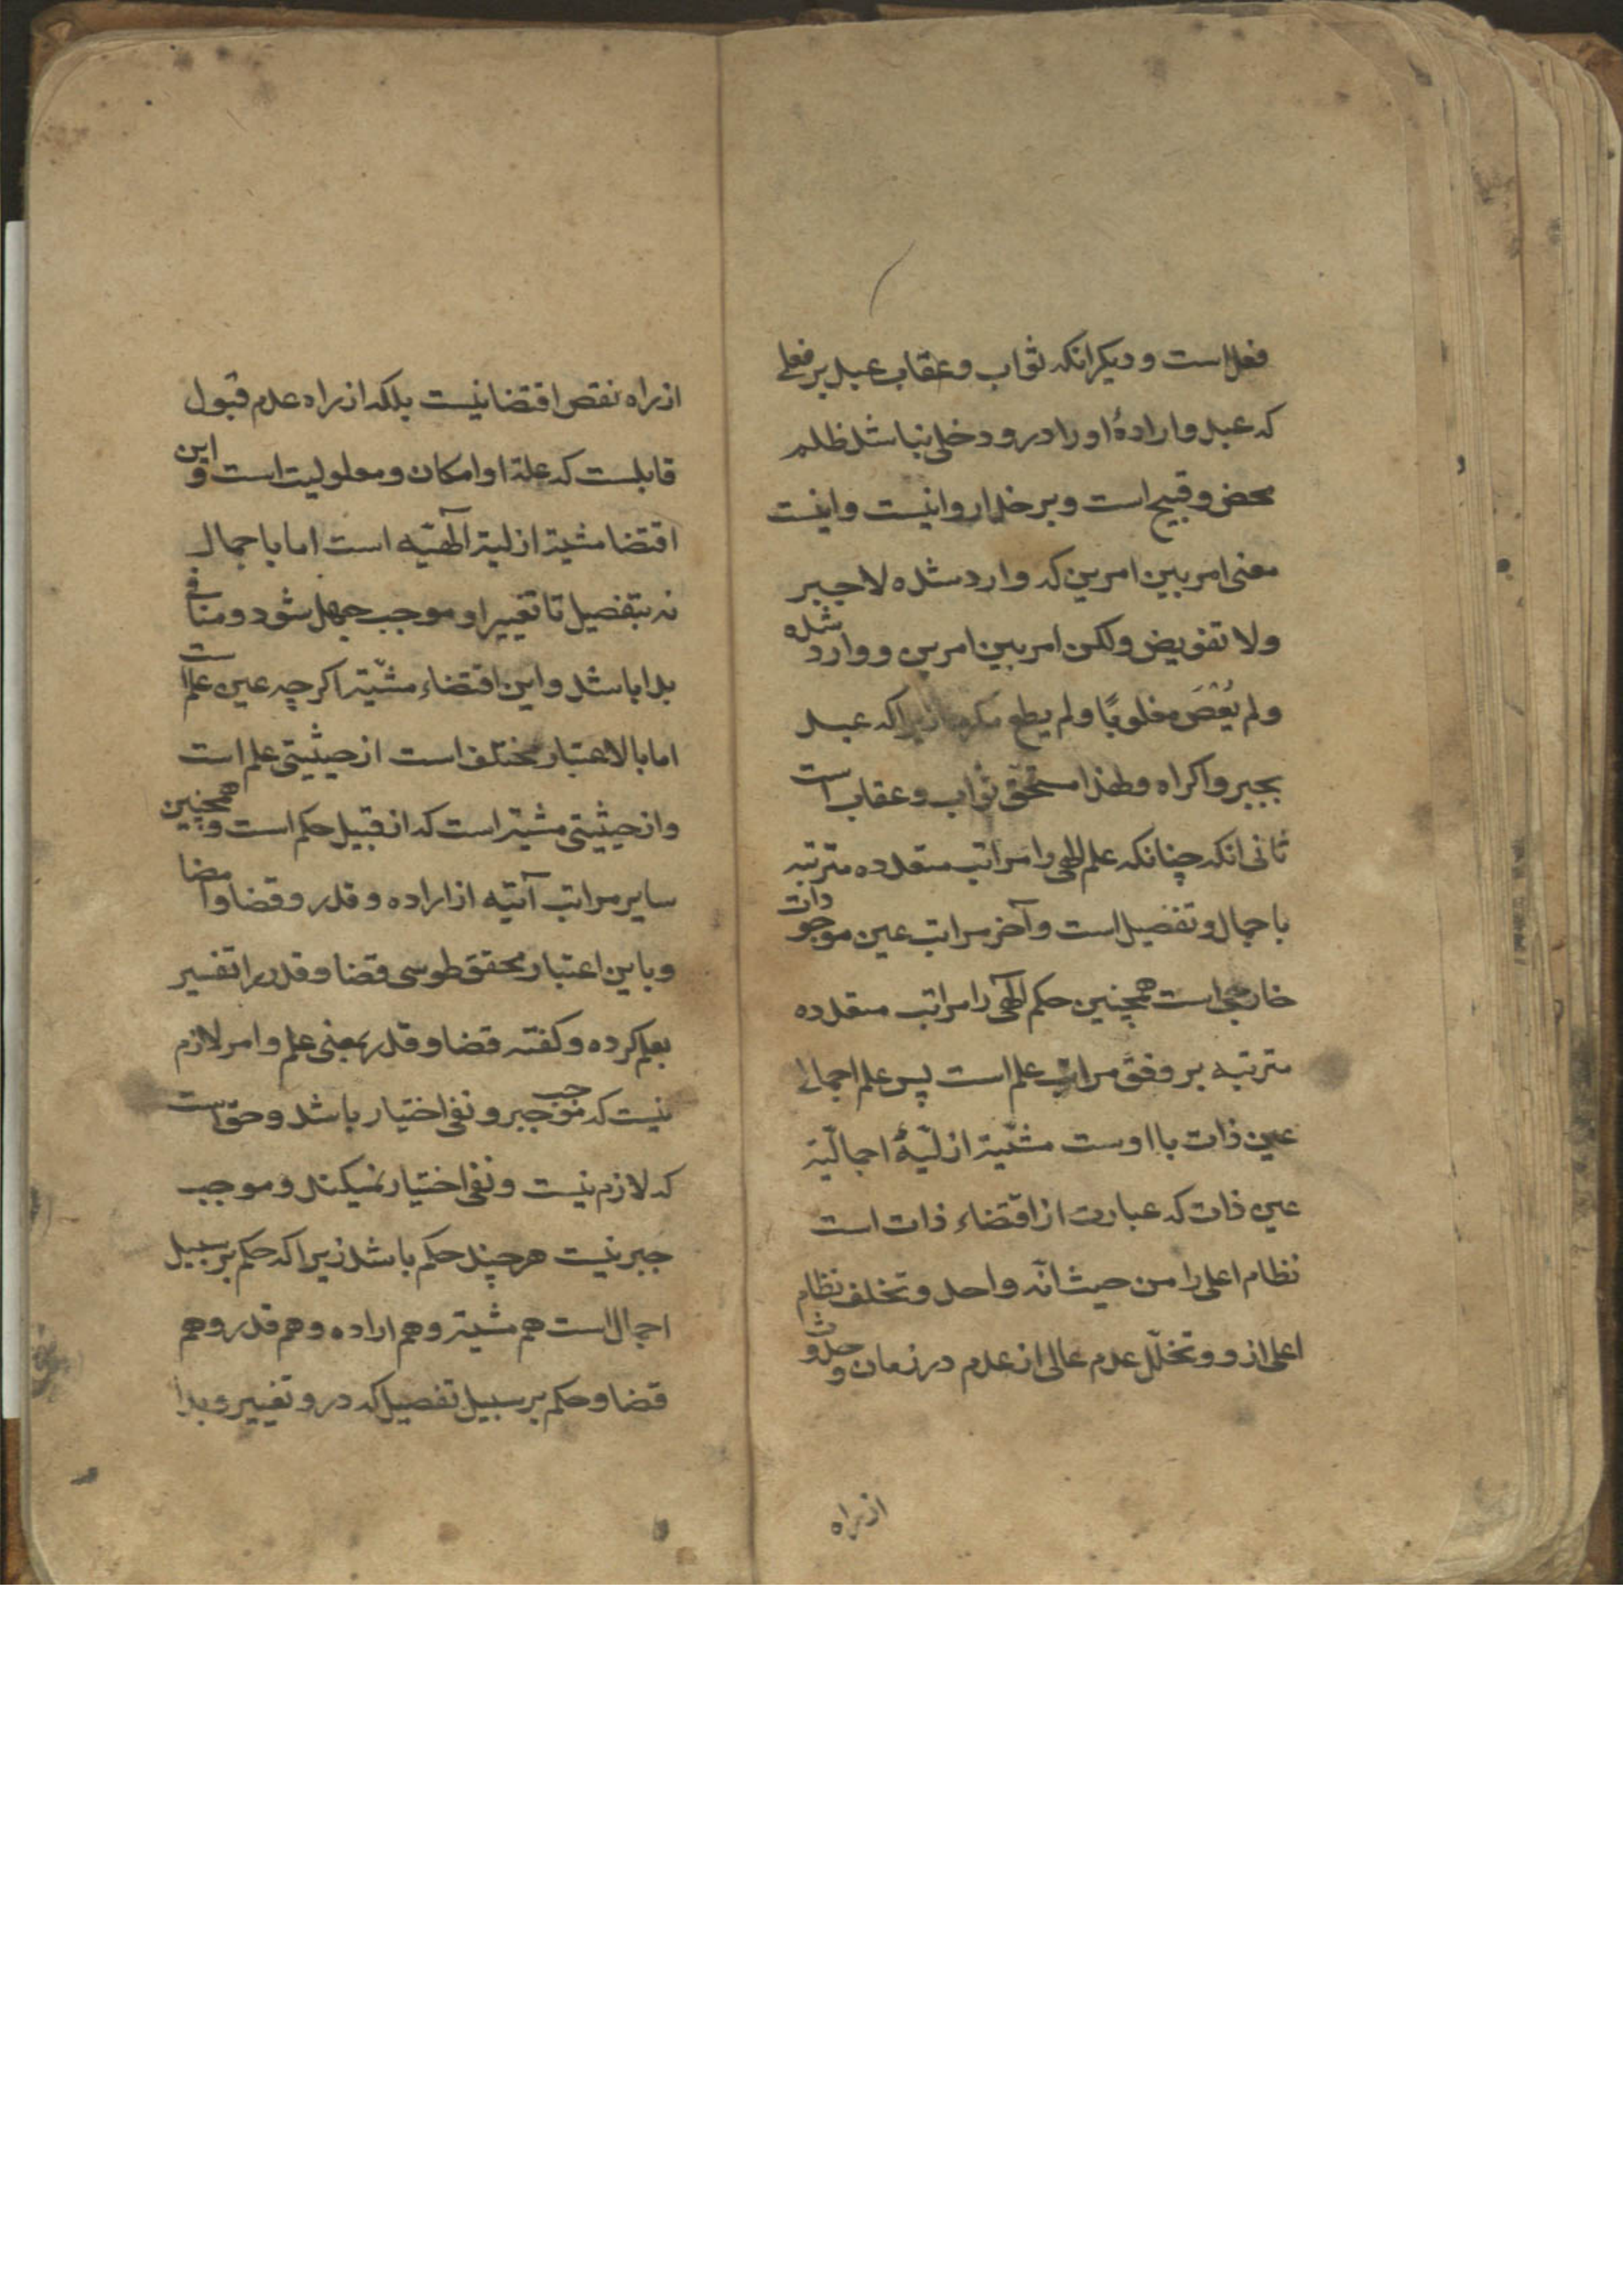 فعل است و دیکر انکه ثواب و عقاب عبد بر فعلی
که عبد و ارادهٔ او را درو دخلی نباشد ظلم
محض و قبیح است و بر خدا روا نیست و اینست
معنی امر بین امرین که وارد شده لا جبر
ولا تفویض ولکن امر بین امرین و وارد شده
ولم یُعْصَ مغلوبًا ولم یطع مکرها زیرا که عبد
بجبر و اکراه و لهذا مستحق ثواب و عقاب است
ثانی انکه چنانکه علم الهی را مراتب متعدده مترتبه
باجمال و تفصیل است و آخر مراتب عین موجودات
خارجی است همچنین حکم الٓهی را مراتب متعدده
مترتبه بر وفق مراتب علم است پس علم اجمالی
عین ذات با اوست مشیّة ازلیّهٔ اجمالیّة
عین ذات که عبارت از اقتضاء ذات است
نظام اعلی را من حیث انّه واحد و تخلف نظام
اعلی ازو و تخلّل عدم عالی از عدم در زمان و حدوث
از راه
از راه نقص اقتضا نیست بلکه از راه عدم قبول
قابلست که علة او امکان و معلولیت است و این
اقتضا مشیة ازلیة الٓهیّه است اما باجمال
نه بتفصیل تا تغییر او موجب جهل شود و منافی
بدا باشد و این اقتضاء مشیّة اکرچه عین علم است
اما بالاعتبار مختلف است از حیثیتی علم است
و از حیثیتی مشیة است که از قبیل حکم است و همچنین
سایر مراتب آتیه از اراده و قدر و قضا و امضا
و باین اعتبار محقق طوسی قضا و قدر را تفسیر
بعلم کرده و کفته قضا و قدر بمعنی علم و امر لازم
نیست که موجب جبر و نفی اختیار باشد و حق است
که لازم نیست و نفی اختیار نمیکند و موجب
جبر نیست هر چند حکم باشد زیرا که حکم بر سبیل
اجمال است هم مشیة و هم اراده و هم قدر و هم
قضا و حکم بر سبیل تفصیل که درو تغییر و بدا